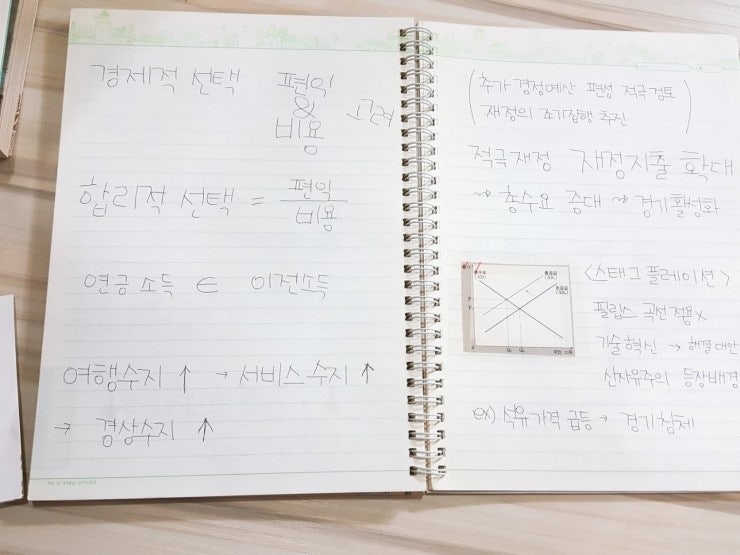 경제적 선택 편익
& 고려
비용
합리적 선택 = 편익
비용
연금소득 ∈ 이전소득
여행수지 ↑ → 서비스수지 ↑
→ 경상수지 ↑
be a step ahead
(추가경정예산 편성 적극검토
재정의 조기집행 추진)
적극재정 재정지출 확대
⇝ 총수요 증대 ⇝ 경기활성화
<스태그플레이션>
필립스 곡선 적용 x
기술혁신 → 해결대안
신자유주의 등장배경
ex) 석유가격 급등 → 경기침체
물가
총수요
(AD)
총공급
총공급
국민 소득